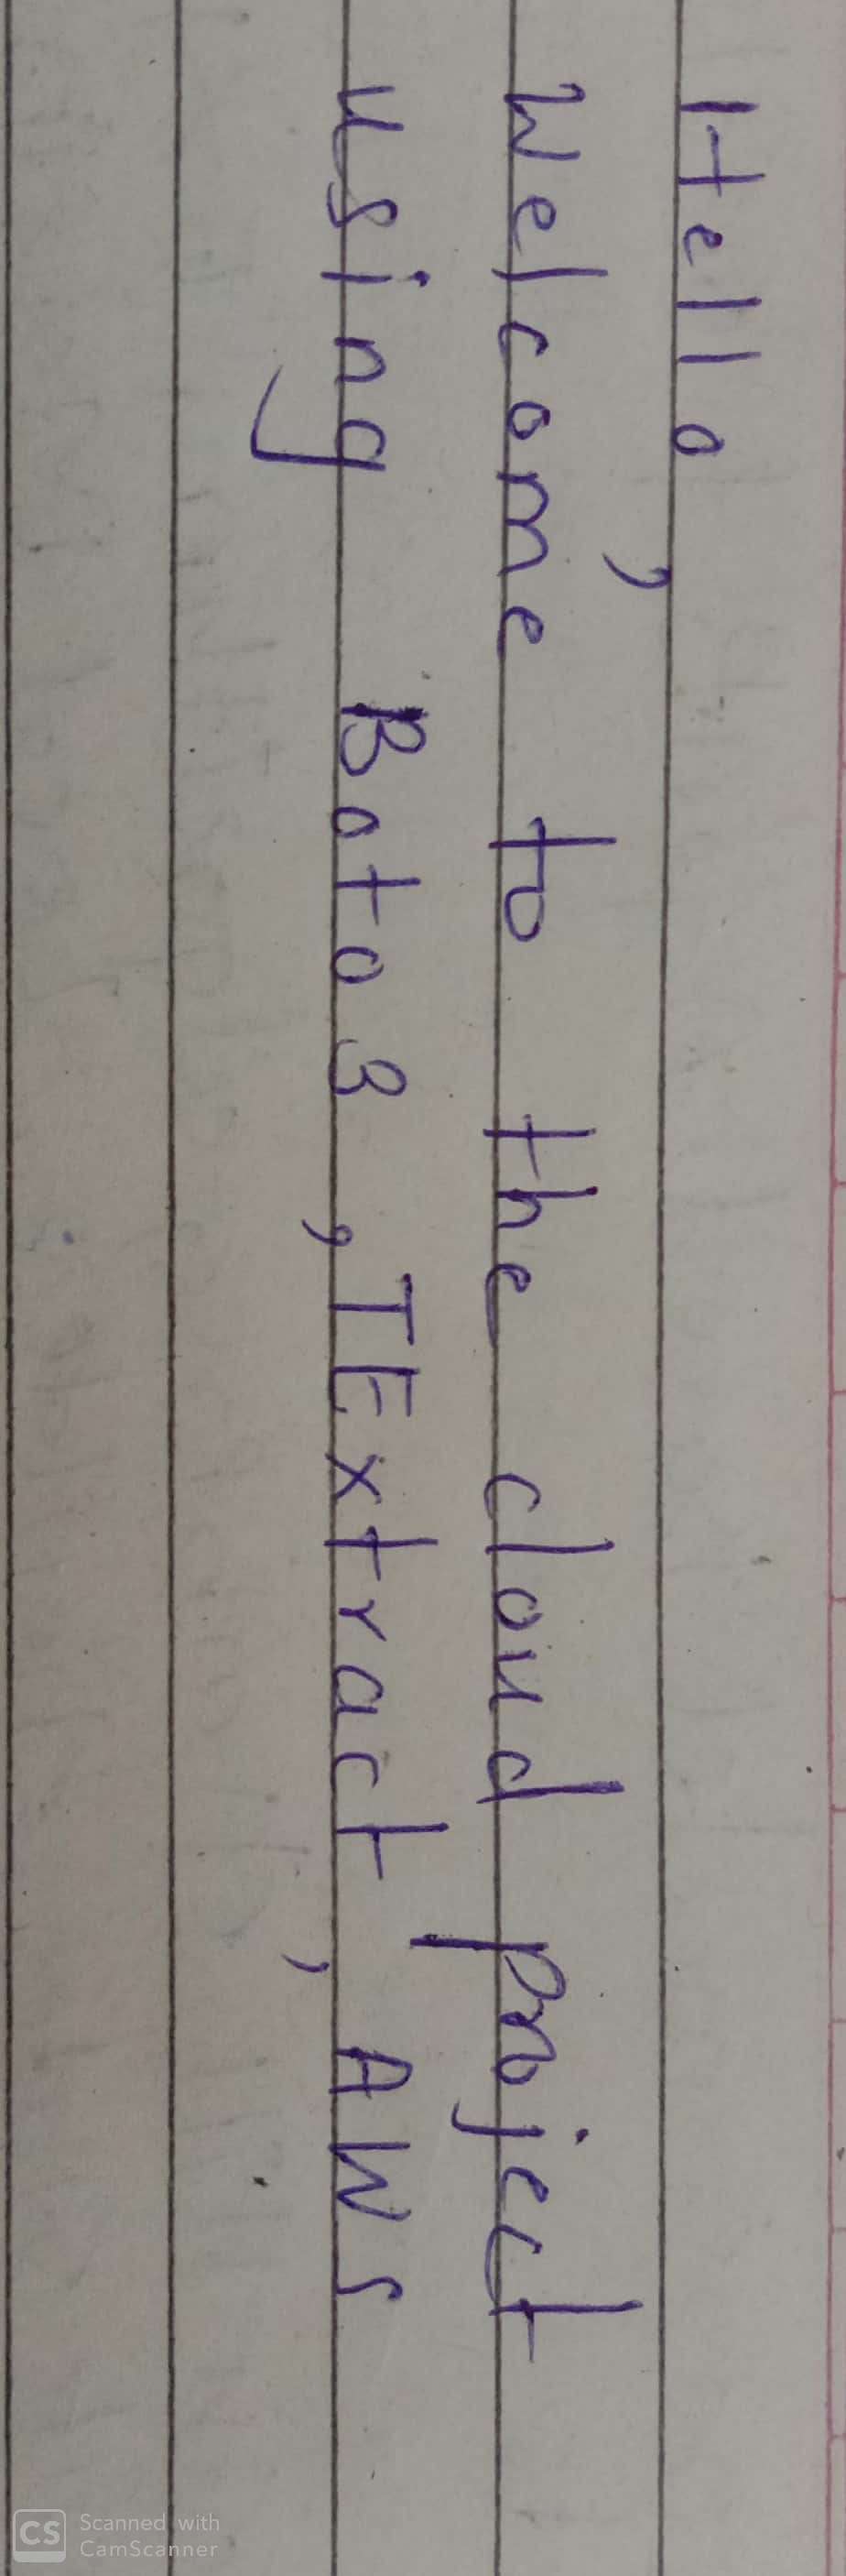 Hello,
Welcome to the cloud project
using Boto3, TExtract, AWS
Scanned with
CamScanner
CS